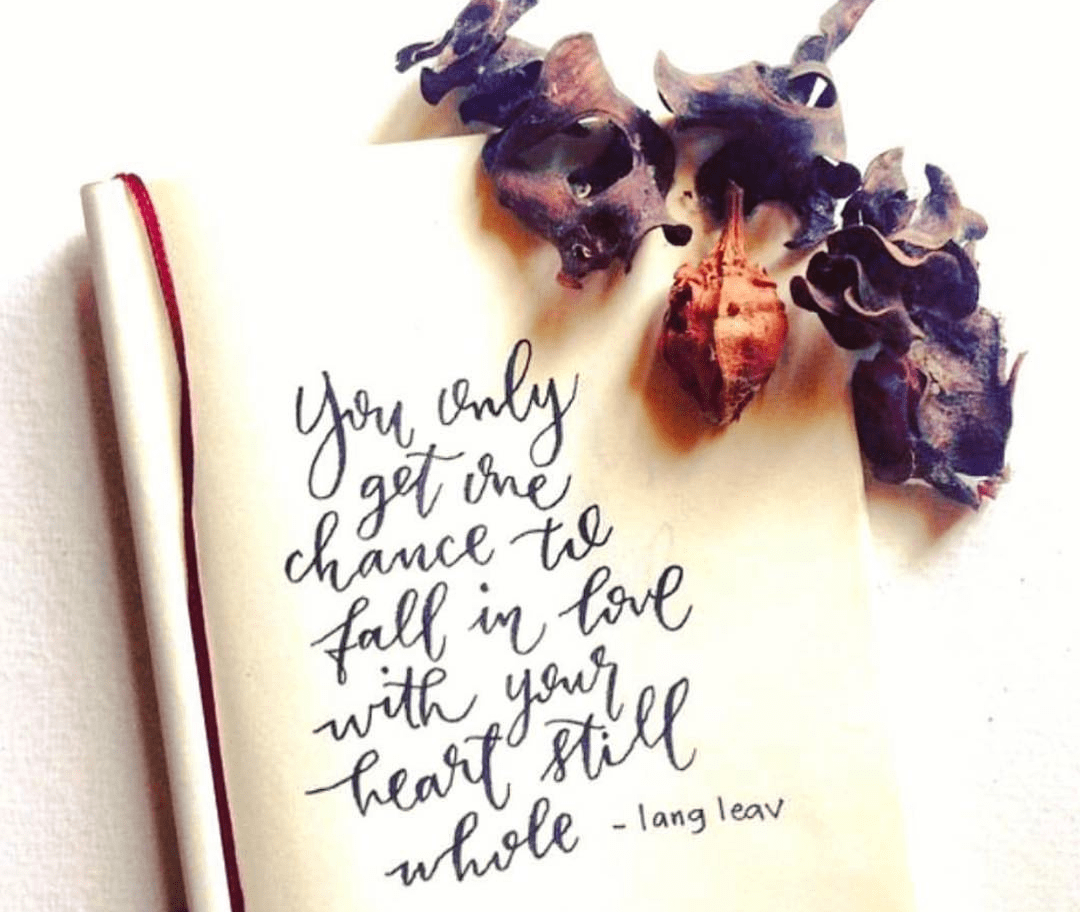 You only
get one
chance to
fall in love
with your
heart still
whole - lang leav